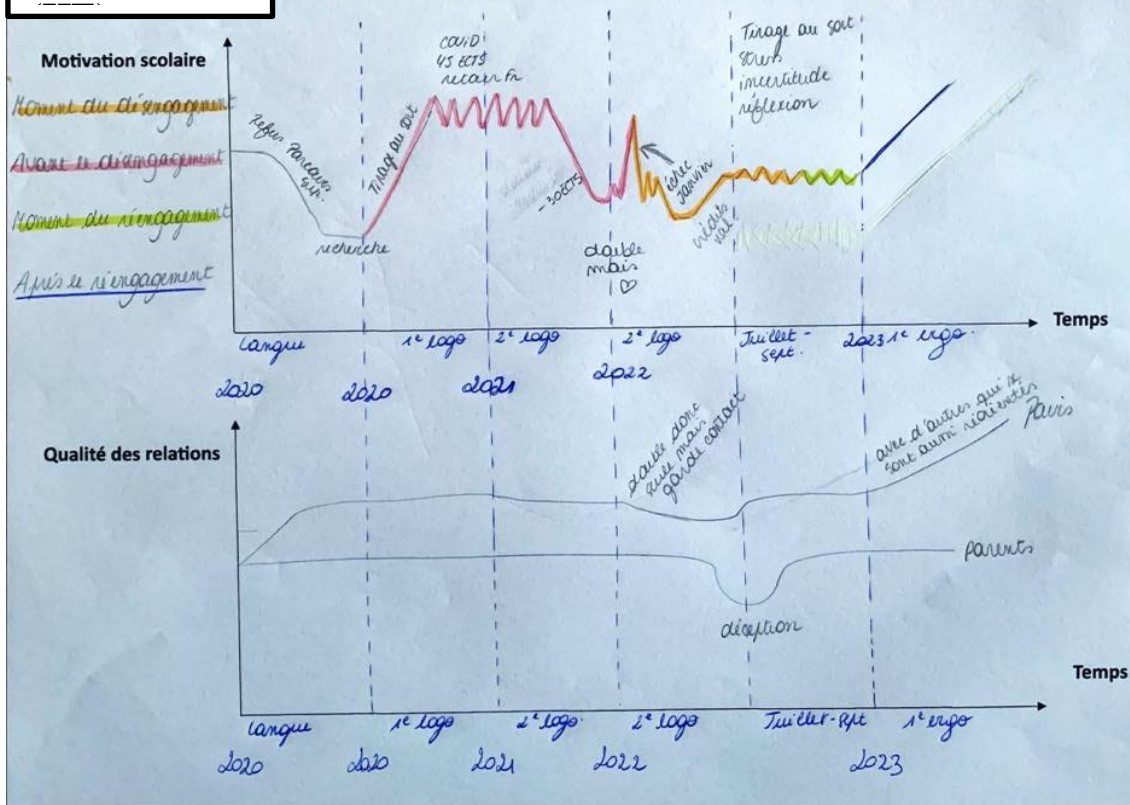 Motivation scolaire
Moment du désengagement
Avant le désengagement
Moment du réengagement
Après le réengagement
Refus parcours
sup.
recherche
Tirage au sort
COVID
45 ECTS
-30 ECTS
double
mais
♡
échec
Janvier
crédits
Tirage au sort
stress
incertitude
réflexion
Temps
Langue
1e logo
2e logo
2e logo
Juillet -
sept.
1e ergo.
2020
2020
2021
2022
2023
Qualité des relations
double donc
seule mais
garde contact
avec d'autres qui se
sont aussi réorientés
Pairs
parents
déception
Temps
Langue
1e logo
2e logo.
2e logo
Juillet-Spt
1e ergo
2020
2020
2021
2022
2023